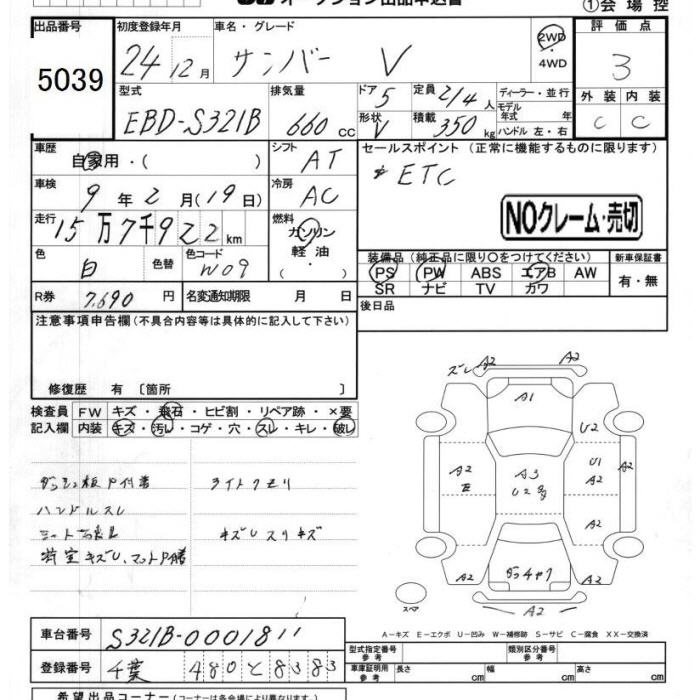 ①会場控
出品番号 初度登録年月 車名・グレード 評価点
5039 24 12月 サンバー V 2WD・4WD 3
型式 排気量 ドア 定員 ディーラー・並行 外装 内装
EBD-S321B 660cc 5 2/4人 モデル年式 年 C C
形状 積載
V 350kg ハンドル 左・右
車歴 シフト セールスポイント (正常に機能するものに限ります)
自家用・( ) AT ETC
車検 冷房
9年2月(19日) AC
NOクレーム・売切
走行 燃料
15万7千922km ガソリン・軽油
色 色替 色コード 装備品 (純正品に限り○をつけてください) 新車保証書
白 W09 PS PW ABS エアB AW 有・無
SR ナビ TV カワ
R券 7,690円 名変通知期限 月 日 後日品
注意事項申告欄(不具合内容等は具体的に記入して下さい)
修復歴 有 〔箇所 〕
検査員 FW キズ・飛石・ヒビ割・リペア跡・×要
記入欄 内装 キズ・汚レ・コゲ・穴・スレ・キレ・破レ
ライトクモリ
ハンドルスレ
キズUスリキズ
ズレ A2 A2
A1
U2
A2 A3 U1 A2
E U2
A2
A2 A2
A2
スペア
A-キズ E-エクボ U-凹み W-補修跡 S-サビ C-腐食 XX-交換済
車台番号 S321B-0001811
登録番号 千葉 480 と 8383
型式指定番号 参考 類別区分番号 参考
車庫証明用 参考 長さ cm 幅 cm 高さ cm
希望出品コーナー(コーナーは各会場により異なります)